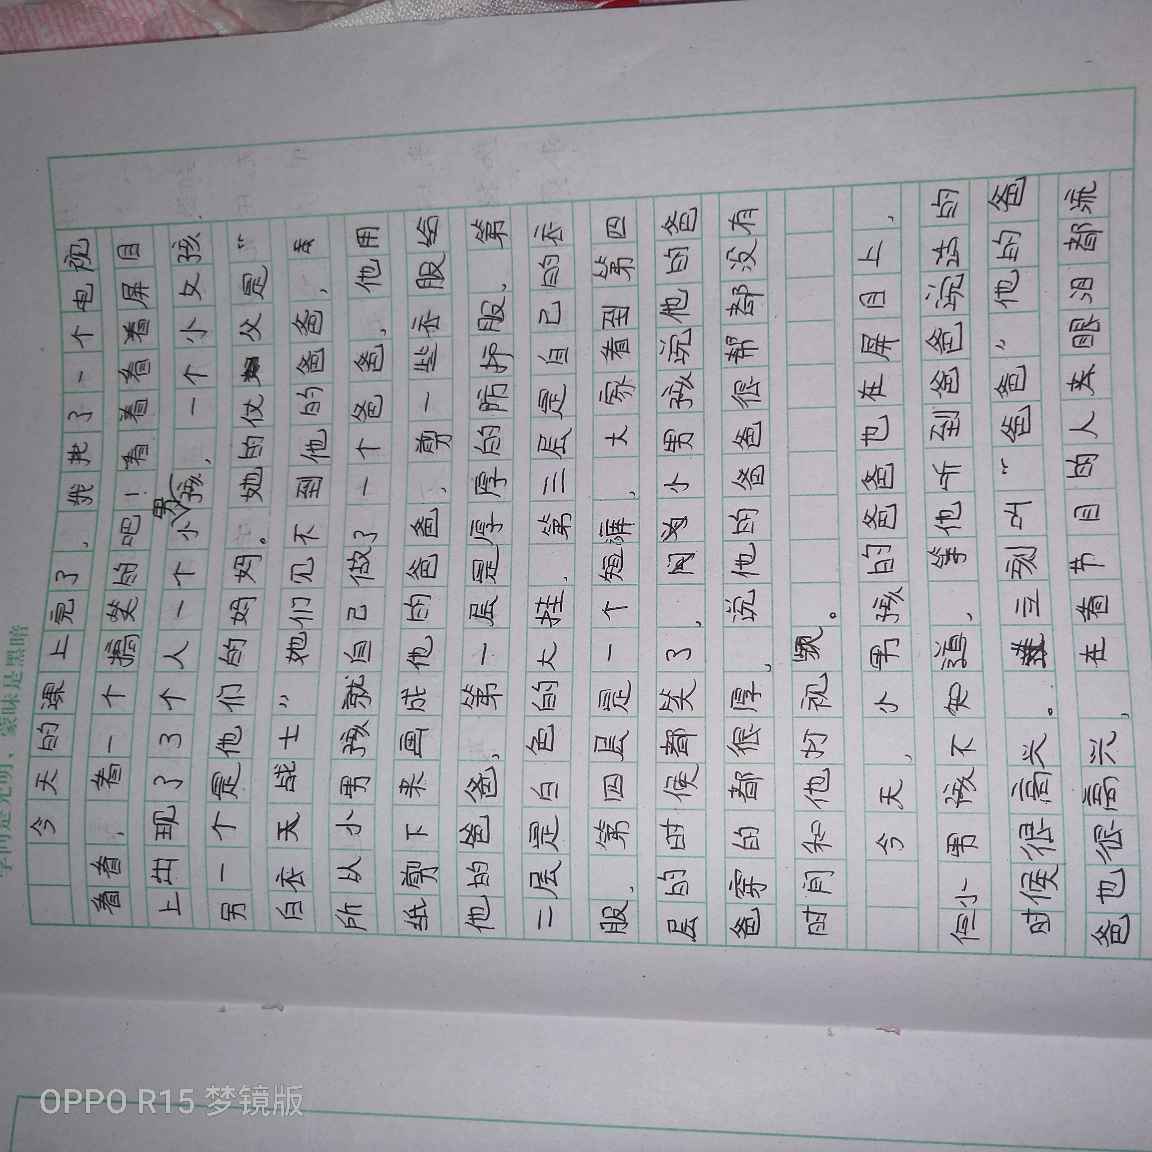 学问是光明、蒙昧是黑暗
今天的课上完了，我找了一个电视
看看，看一个搞笑的吧！看着看着屏目
上出现了3个人一个小男孩，一个小女孩
另一个是他们的妈妈。她的仗父是“
白衣天战士”她们见不到他的爸爸，
所从小男孩就自己做了一个爸爸，他用
纸剪下来画成他的爸爸，剪一些衣服给
他的爸爸，第一层是厚厚的防护服，第
二层是白色的大挂，第三层是自己的衣
服，第四层是一个短裤，大家看到第四
层的时侯都笑了，小男孩说他的爸
爸穿的都很厚，说他的爸爸很帮都没有
时间和他打视频。
今天，小男孩的爸爸也在屏目上，
但小男孩不知道，等他听到爸爸说话的
时候很高兴。立刻叫“爸爸”他的爸
爸也很高兴，在看节目的人来眼泪都流
OPPO R15 梦镜版